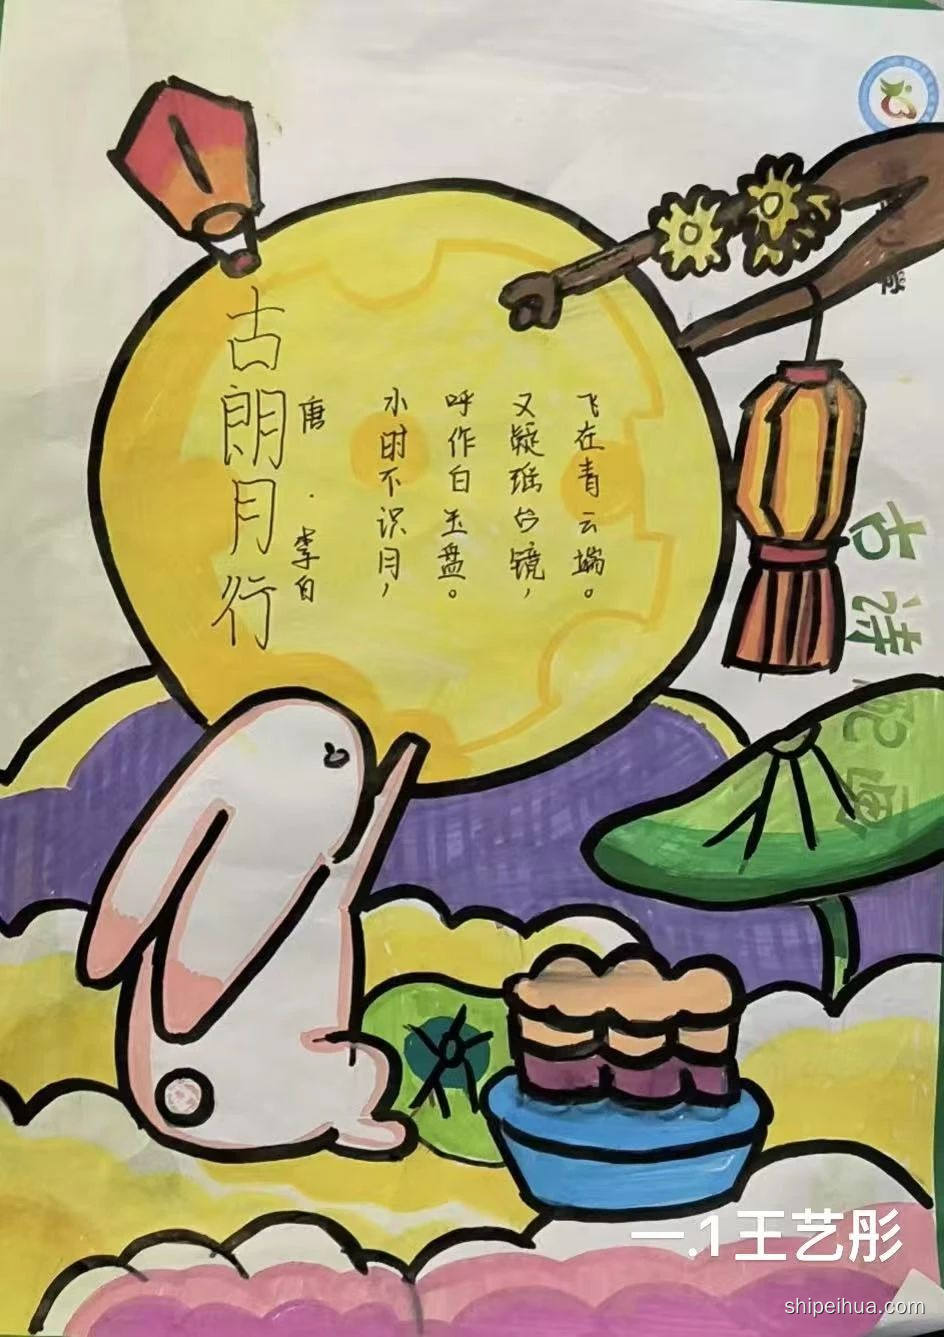 古朗月行
唐·李白
小时不识月，
呼作白玉盘。
又疑瑶台镜，
飞在青云端。
古诗配画
一.1王艺彤
shipeihua.com